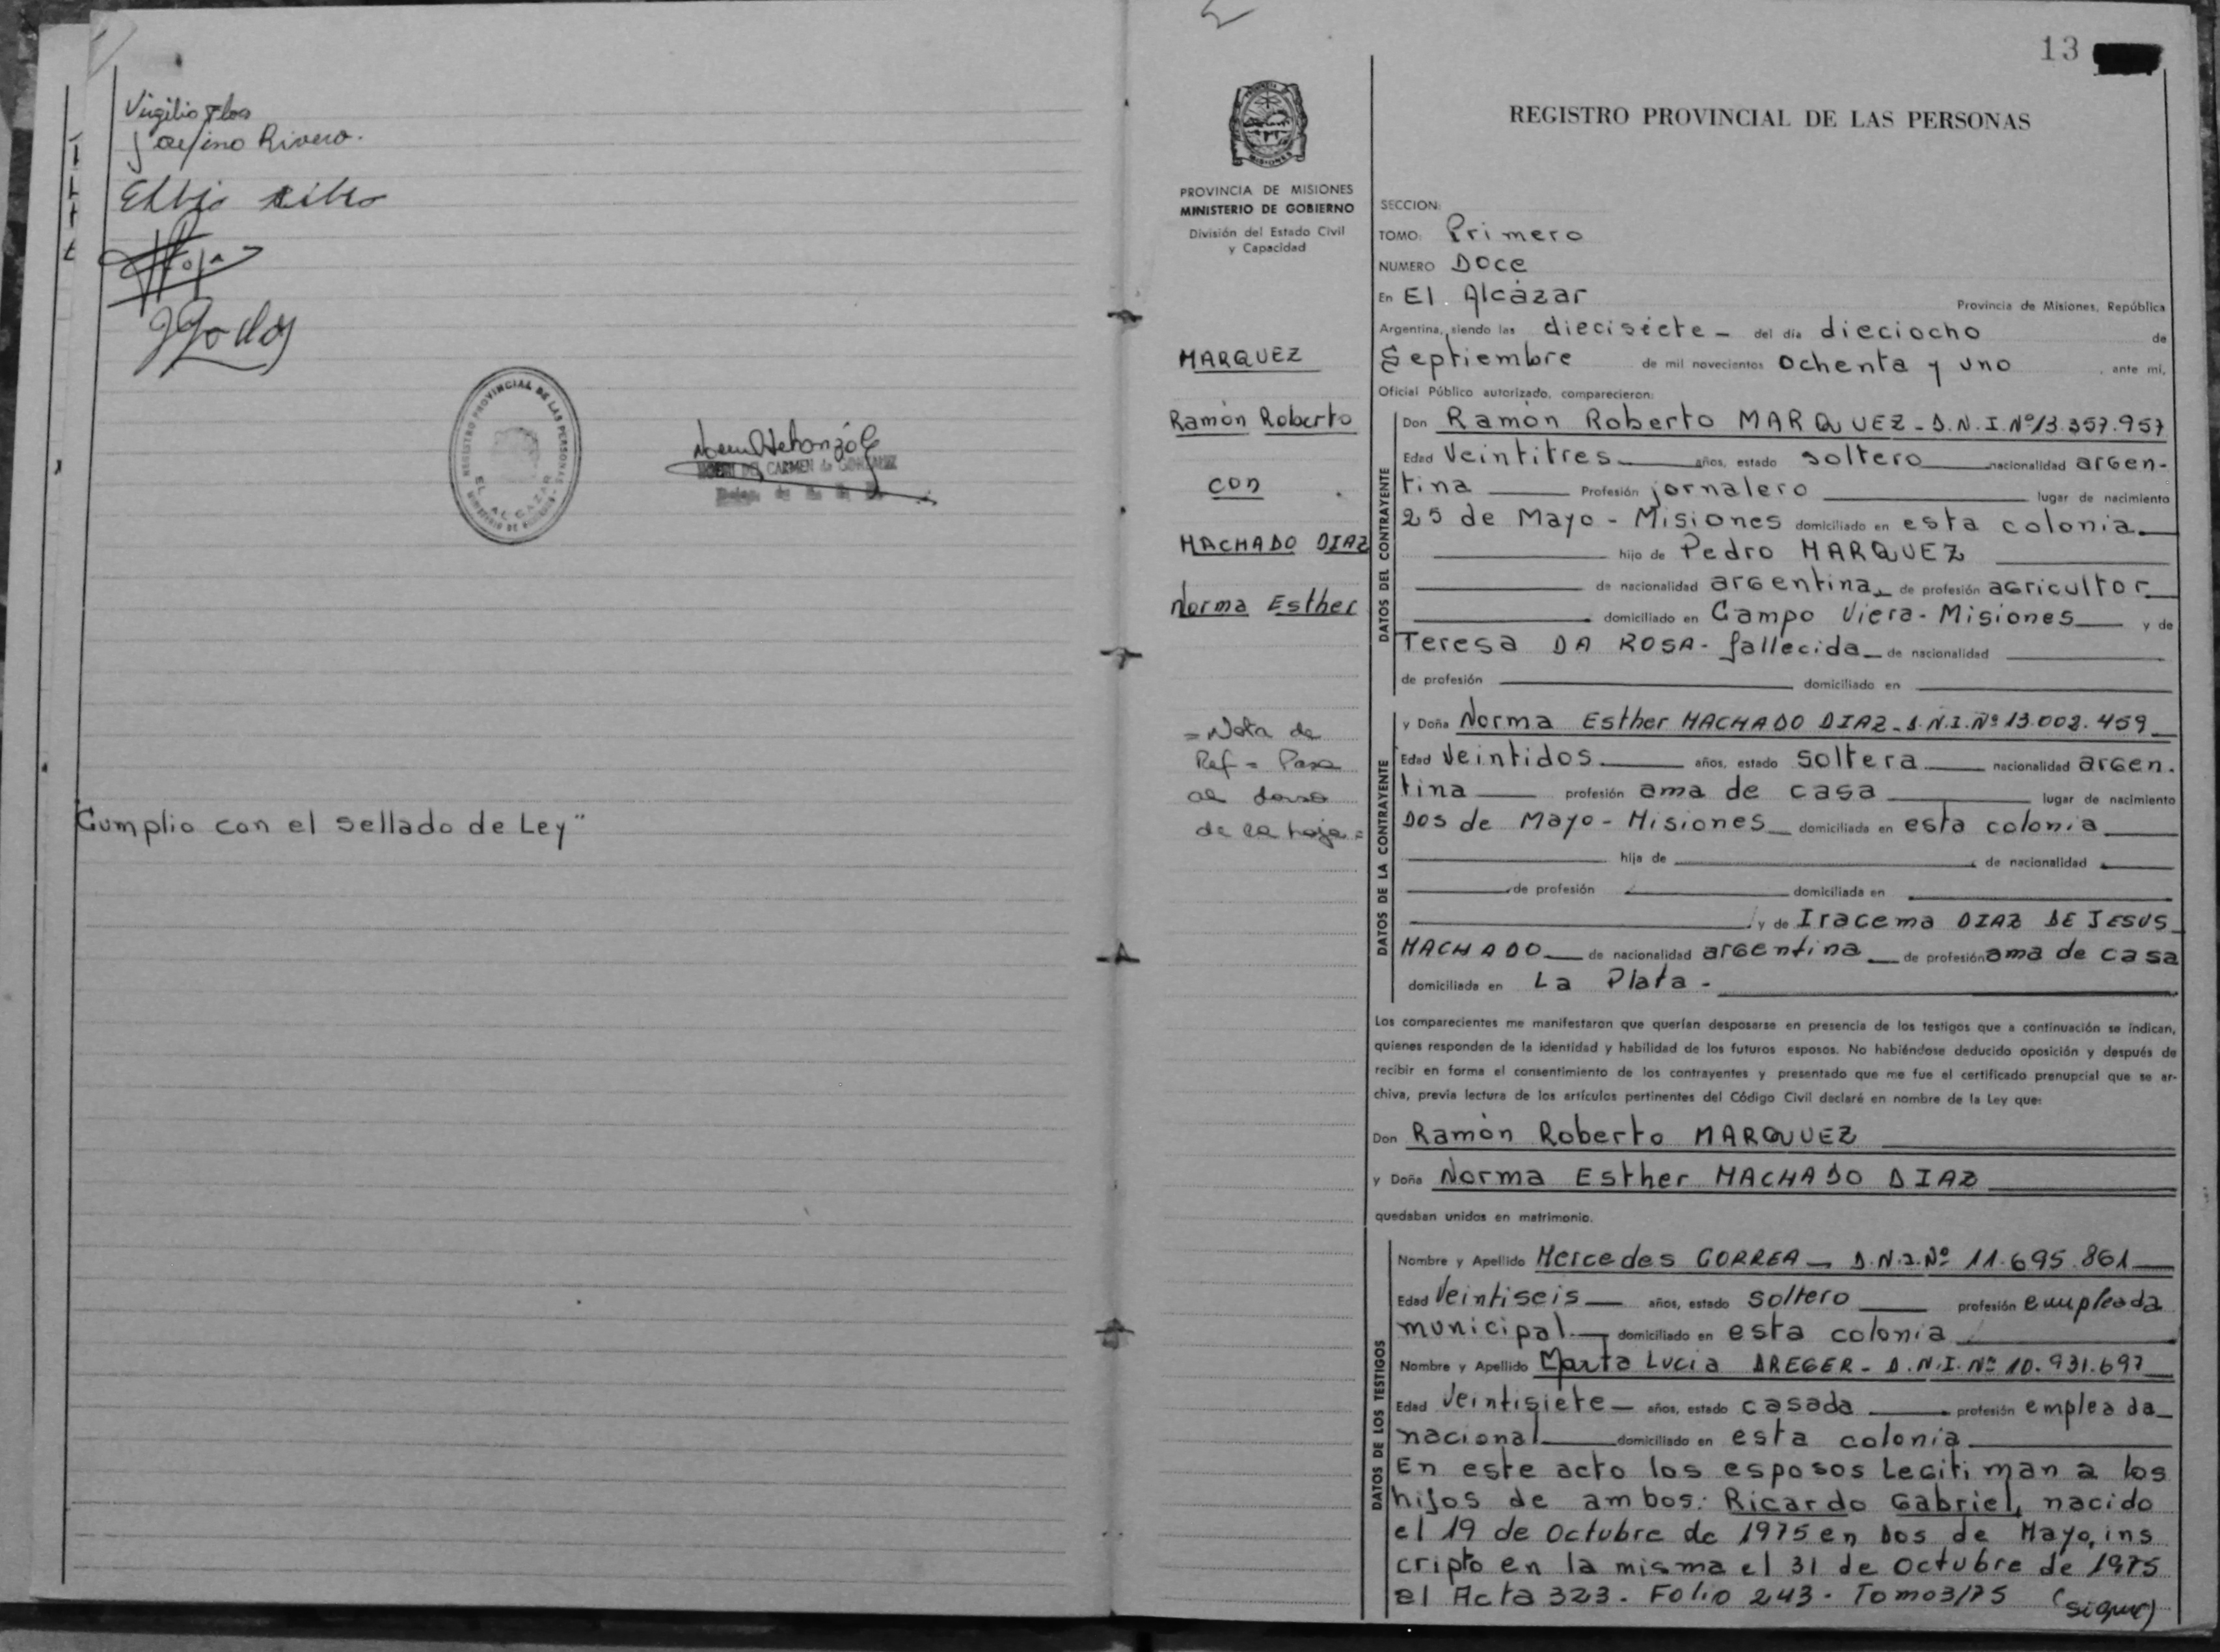 Virgilio
Rivero.
REGISTRO PROVINCIAL DE LAS PERSONAS
EL ALCAZAR
DEL CARMEN de GONZALEZ
"Cumplio con el sellado de Ley"
13
PROVINCIA DE MISIONES
MINISTERIO DE GOBIERNO
División del Estado Civil
y Capacidad
MARQUEZ
Ramón Roberto
con
MACHADO DIAZ
Norma Esther
= Nota de
Ref = Pasa
al dorso
de la hoja =
REGISTRO PROVINCIAL DE LAS PERSONAS
SECCION:
TOMO: Primero
NUMERO Doce
En El Alcázar Provincia de Misiones, República
Argentina, siendo las diecisiete - del día dieciocho de
Septiembre de mil novecientos ochenta y uno , ante mí,
Oficial Público autorizado, comparecieron:
DATOS DEL CONTRAYENTE
Don Ramón Roberto MARQUEZ - D.N.I. Nº 13.357.957
Edad Veintitres años, estado soltero nacionalidad argen-
tina Profesión jornalero lugar de nacimiento
25 de Mayo - Misiones domiciliado en esta colonia
hijo de Pedro MARQUEZ
de nacionalidad argentina de profesión agricultor
domiciliado en Campo Viera - Misiones y de
Teresa DA ROSA - fallecida de nacionalidad
de profesión domiciliado en
DATOS DE LA CONTRAYENTE
y Doña Norma Esther MACHADO DIAZ - D.N.I. Nº 13.002.459
Edad Veintidos años, estado soltera nacionalidad argen-
tina profesión ama de casa lugar de nacimiento
Dos de Mayo - Misiones domiciliada en esta colonia
hija de de nacionalidad
de profesión domiciliada en
y de Iracema DIAZ DE JESUS
MACHADO de nacionalidad argentina de profesión ama de casa
domiciliada en La Plata -
Los comparecientes me manifestaron que querían desposarse en presencia de los testigos que a continuación se indican,
quienes responden de la identidad y habilidad de los futuros esposos. No habiéndose deducido oposición y después de
recibir en forma el consentimiento de los contrayentes y presentado que me fue el certificado prenupcial que se ar-
chiva, previa lectura de los artículos pertinentes del Código Civil declaré en nombre de la Ley que:
Don Ramón Roberto MARQUEZ
y Doña Norma Esther MACHADO DIAZ
quedaban unidos en matrimonio.
DATOS DE LOS TESTIGOS
Nombre y Apellido Mercedes CORREA - D.N.I. Nº 11.695.861
Edad Veintiseis años, estado soltero profesión empleada
municipal domiciliado en esta colonia
Nombre y Apellido Marta Lucia DREGER - D.N.I. Nº 10.931.697
Edad Veintisiete - años, estado casada profesión empleada
nacional domiciliado en esta colonia
En este acto los esposos Legitiman a los
hijos de ambos: Ricardo Gabriel, nacido
el 19 de Octubre de 1975 en Dos de Mayo, ins
cripto en la misma el 31 de Octubre de 1975
al Acta 323 - Folio 243 - Tomo 3/75 (sigue)